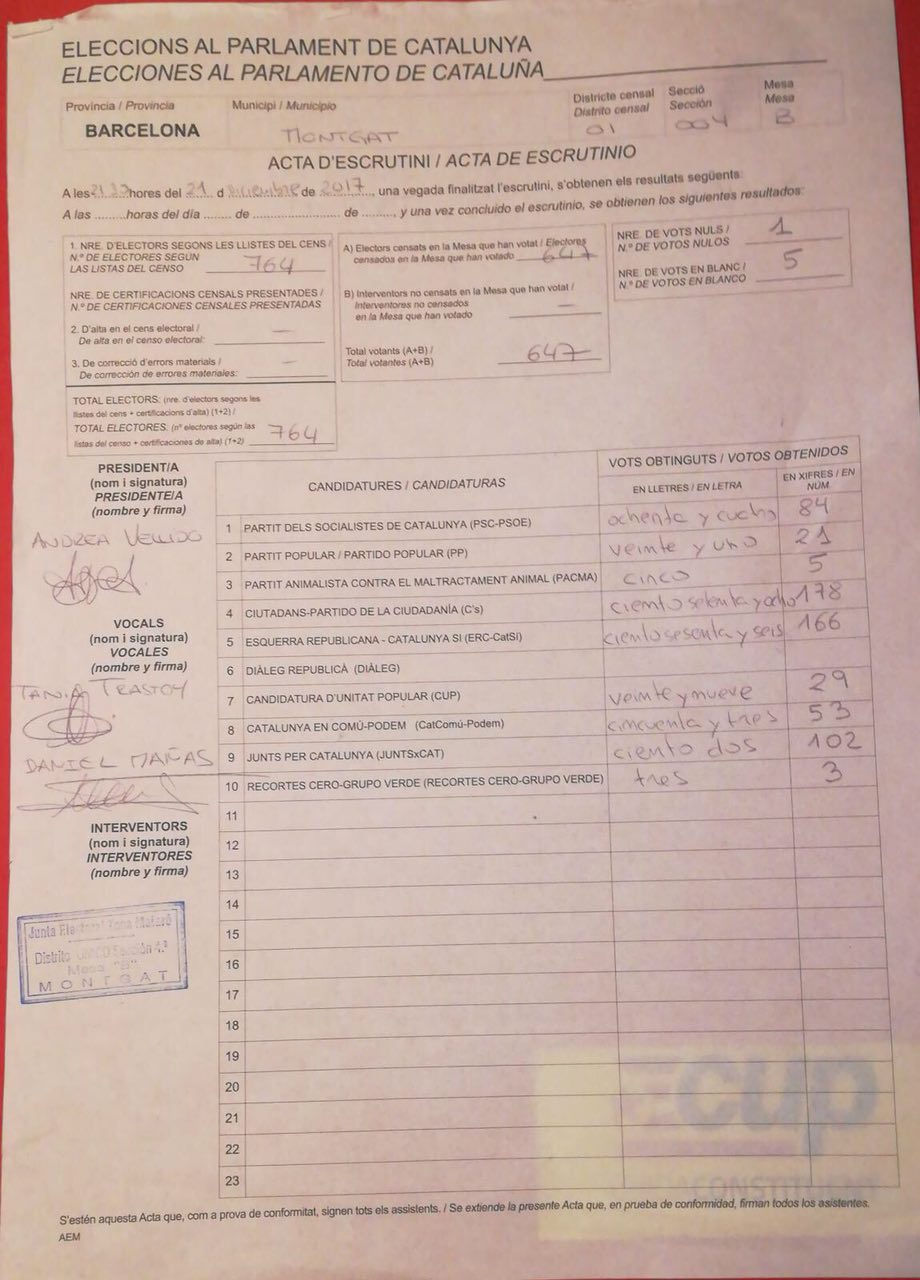 ELECCIONS AL PARLAMENT DE CATALUNYA
ELECCIONES AL PARLAMENTO DE CATALUÑA
Província / Provincia
BARCELONA
Municipi / Municipio
MONTGAT
Districte censal
Distrito censal
01
Secció
Sección
004
Mesa
Mesa
B
ACTA D'ESCRUTINI / ACTA DE ESCRUTINIO
A les hores del 21 d diciembre de 2017, una vegada finalitzat l'escrutini, s'obtenen els resultats següents:
A las ........horas del día ....... de ...................... de ........, y una vez concluido el escrutinio, se obtienen los siguientes resultados:
1. NRE. D'ELECTORS SEGONS LES LLISTES DEL CENS /
N.º DE ELECTORES SEGÚN
LAS LISTAS DEL CENSO 764
NRE. DE CERTIFICACIONS CENSALS PRESENTADES /
N.º DE CERTIFICACIONES CENSALES PRESENTADAS
2. D'alta en el cens electoral / —
De alta en el censo electoral:
3. De correcció d'errors materials / —
De corrección de errores materiales:
TOTAL ELECTORS: (nre. d'electors segons les
llistes del cens + certificacions d'alta) (1+2) /
TOTAL ELECTORES: (nº electores según las
listas del censo + certificaciones de alta) (1+2) 764
A) Electors censats en la Mesa que han votat / Electores
censados en la Mesa que han votado 647
B) Interventors no censats en la Mesa que han votat /
Interventores no censados
en la Mesa que han votado —
Total votants (A+B) /
Total votantes (A+B) 647
NRE. DE VOTS NULS /
N.º DE VOTOS NULOS 1
NRE. DE VOTS EN BLANC /
N.º DE VOTOS EN BLANCO 5
PRESIDENT/A
(nom i signatura)
PRESIDENTE/A
(nombre y firma)
ANDREA VELLIDO
VOCALS
(nom i signatura)
VOCALES
(nombre y firma)
TANIA TRASTOY
DANIEL MAÑAS
INTERVENTORS
(nom i signatura)
INTERVENTORES
(nombre y firma)
Junta Electoral Zona Mataró
Distrito UNICO Sección 4.ª
Mesa "B"
MONTGAT
CANDIDATURES / CANDIDATURAS
VOTS OBTINGUTS / VOTOS OBTENIDOS
EN LLETRES / EN LETRA
EN XIFRES / EN NÚM.
1 PARTIT DELS SOCIALISTES DE CATALUNYA (PSC-PSOE) ochenta y cucho 84
2 PARTIT POPULAR / PARTIDO POPULAR (PP) veinte y uno 21
3 PARTIT ANIMALISTA CONTRA EL MALTRACTAMENT ANIMAL (PACMA) cinco 5
4 CIUTADANS-PARTIDO DE LA CIUDADANÍA (C's) ciento setenta y ocho 178
5 ESQUERRA REPUBLICANA - CATALUNYA SI (ERC-CatSí) ciento sesenta y seis 166
6 DIÀLEG REPUBLICÀ (DIÀLEG)
7 CANDIDATURA D'UNITAT POPULAR (CUP) veinte y nueve 29
8 CATALUNYA EN COMÚ-PODEM (CatComú-Podem) cincuenta y tres 53
9 JUNTS PER CATALUNYA (JUNTSxCAT) ciento dos 102
10 RECORTES CERO-GRUPO VERDE (RECORTES CERO-GRUPO VERDE) tres 3
11
12
13
14
15
16
17
18
19
20
21
22
23
cup
S'estén aquesta Acta que, com a prova de conformitat, signen tots els assistents. / Se extiende la presente Acta que, en prueba de conformidad, firman todos los asistentes.
AEM